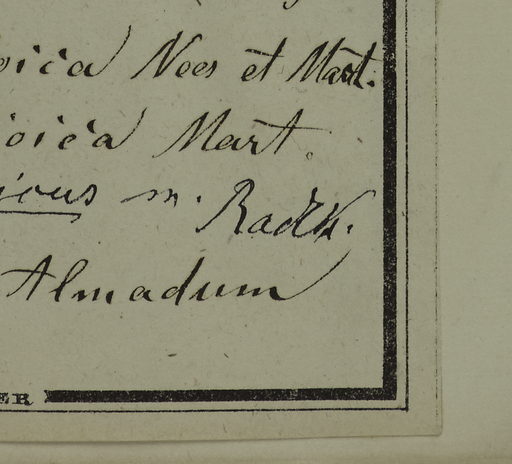 oica Nees et Mart.
oica Mart.
icus m. Radlk.
Almadum
ER